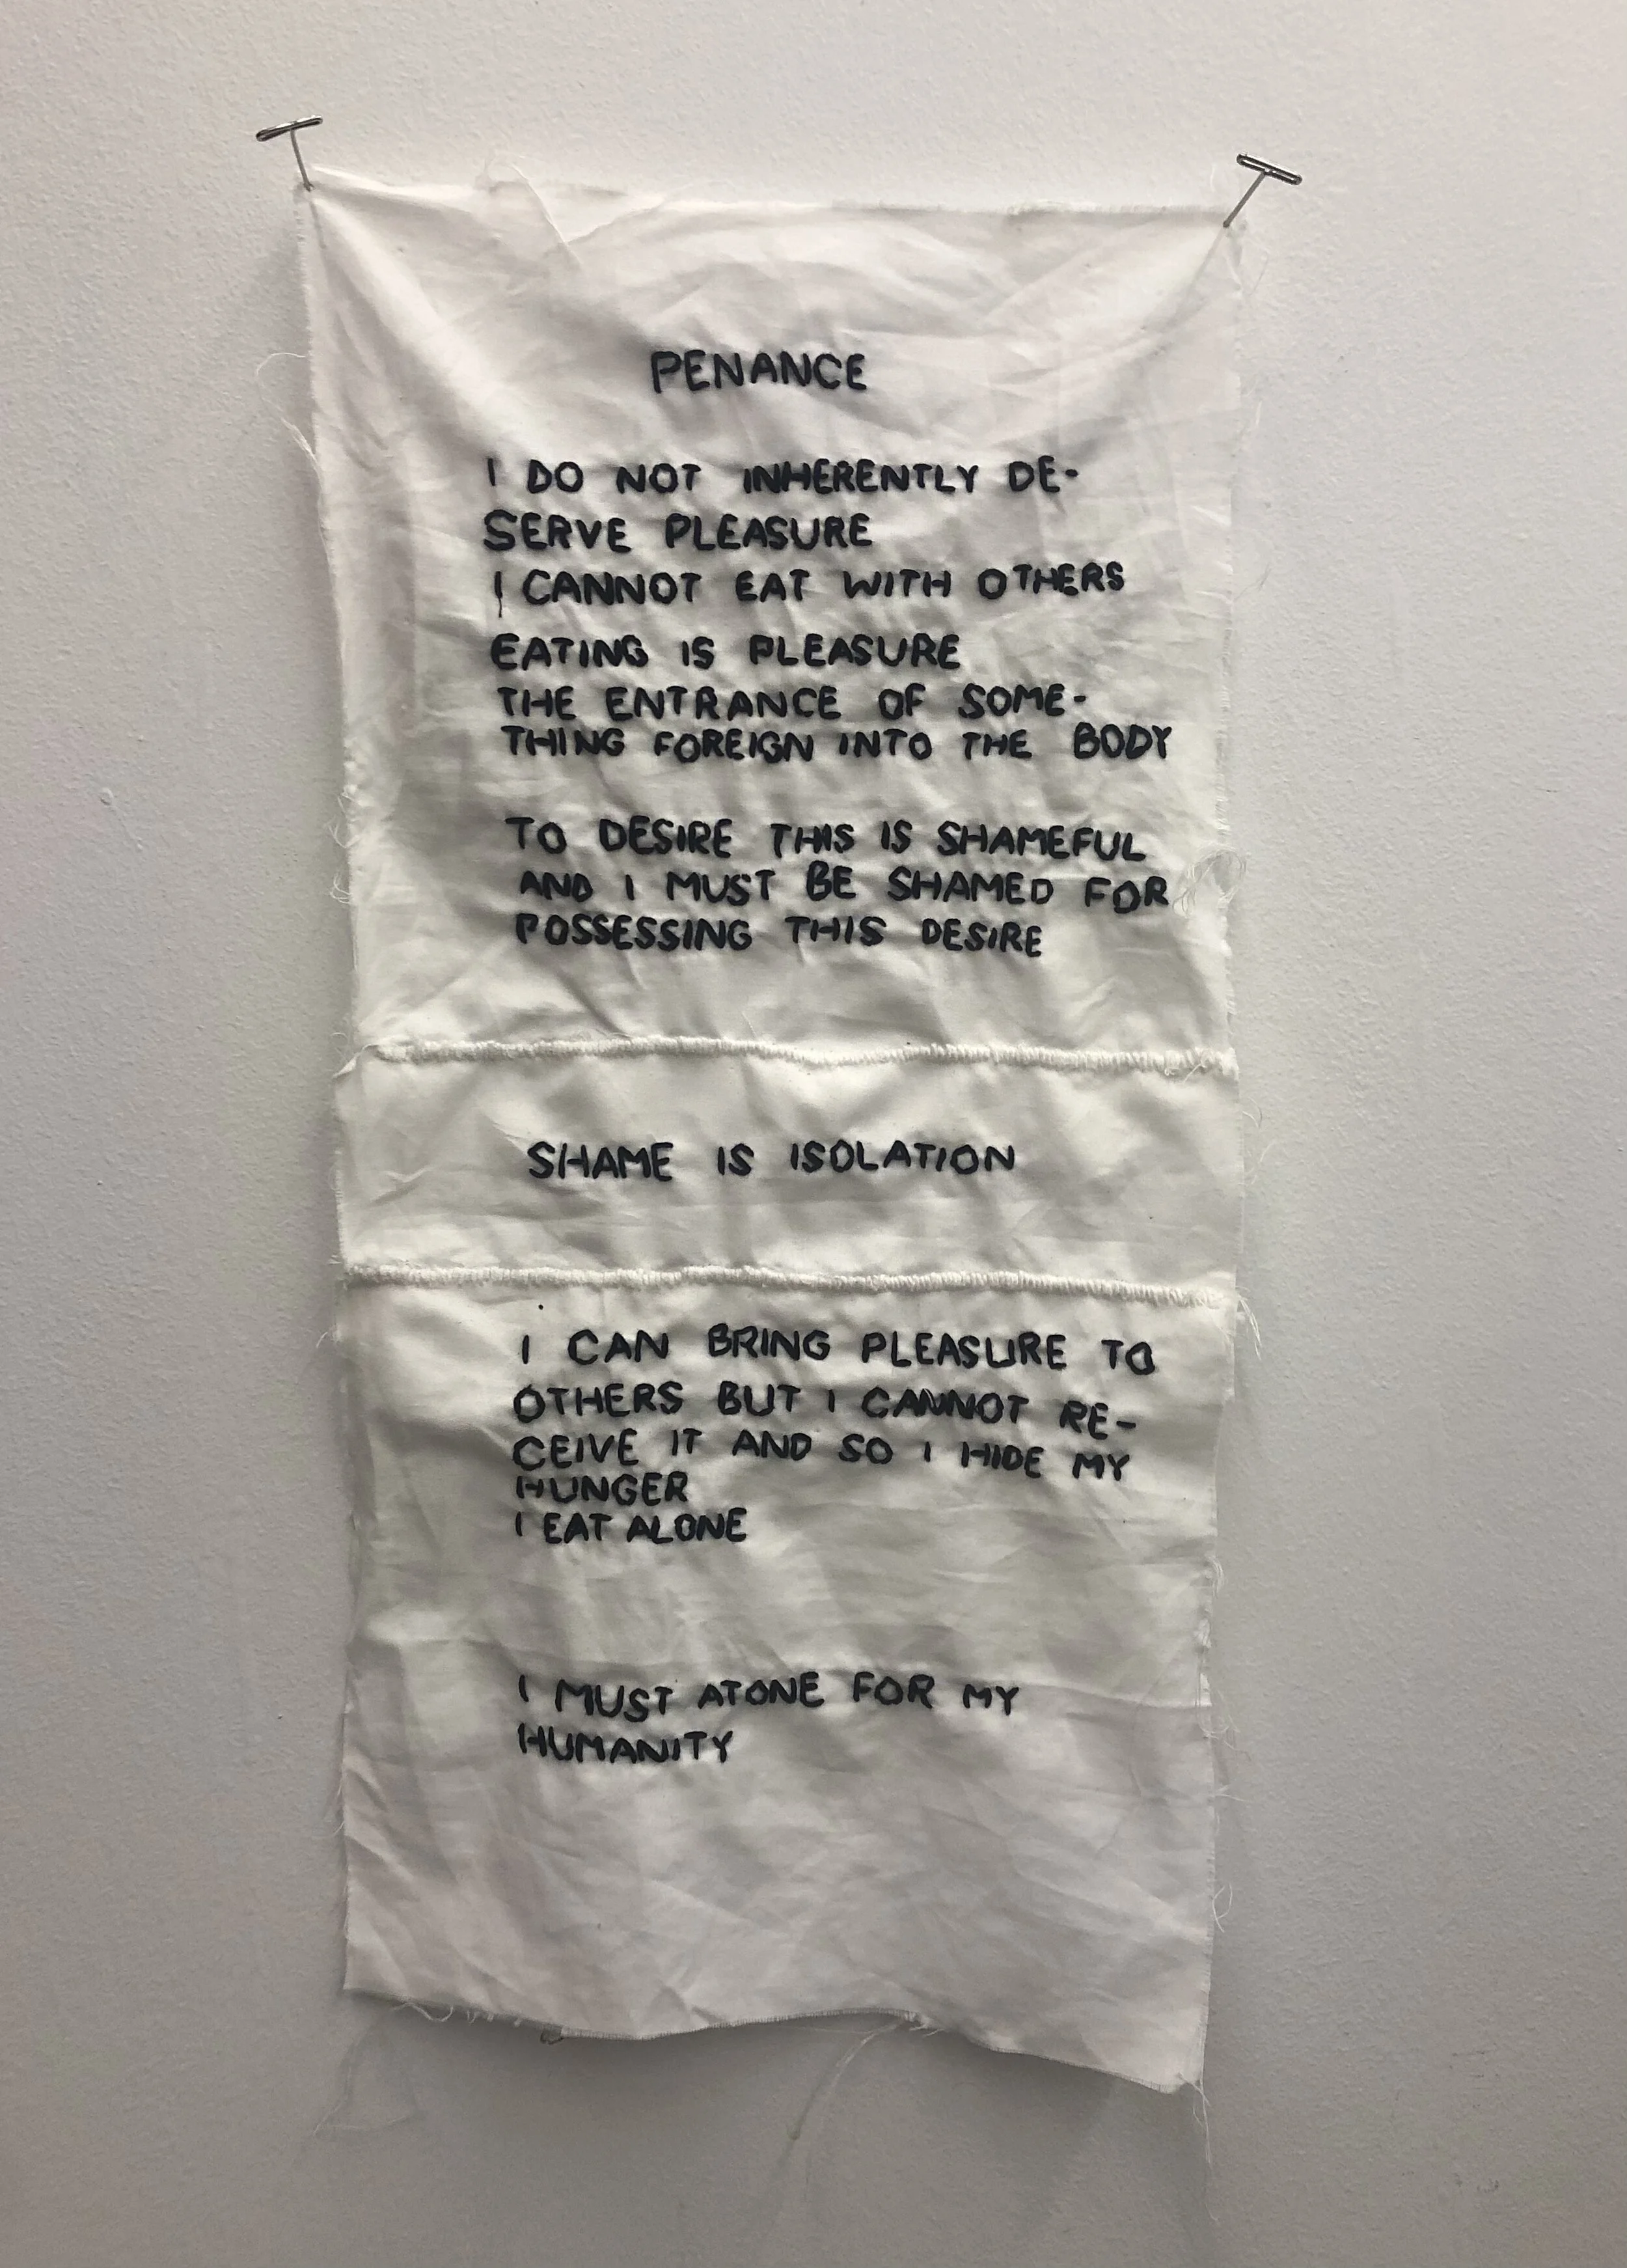 PENANCE
I DO NOT INHERENTLY DE-
SERVE PLEASURE
I CANNOT EAT WITH OTHERS
EATING IS PLEASURE
THE ENTRANCE OF SOME-
THING FOREIGN INTO THE BODY
TO DESIRE THIS IS SHAMEFUL
AND I MUST BE SHAMED FOR
POSSESSING THIS DESIRE
SHAME IS ISOLATION
I CAN BRING PLEASURE TO
OTHERS BUT I CANNOT RE-
CEIVE IT AND SO I HIDE MY
HUNGER
I EAT ALONE
I MUST ATONE FOR MY
HUMANITY